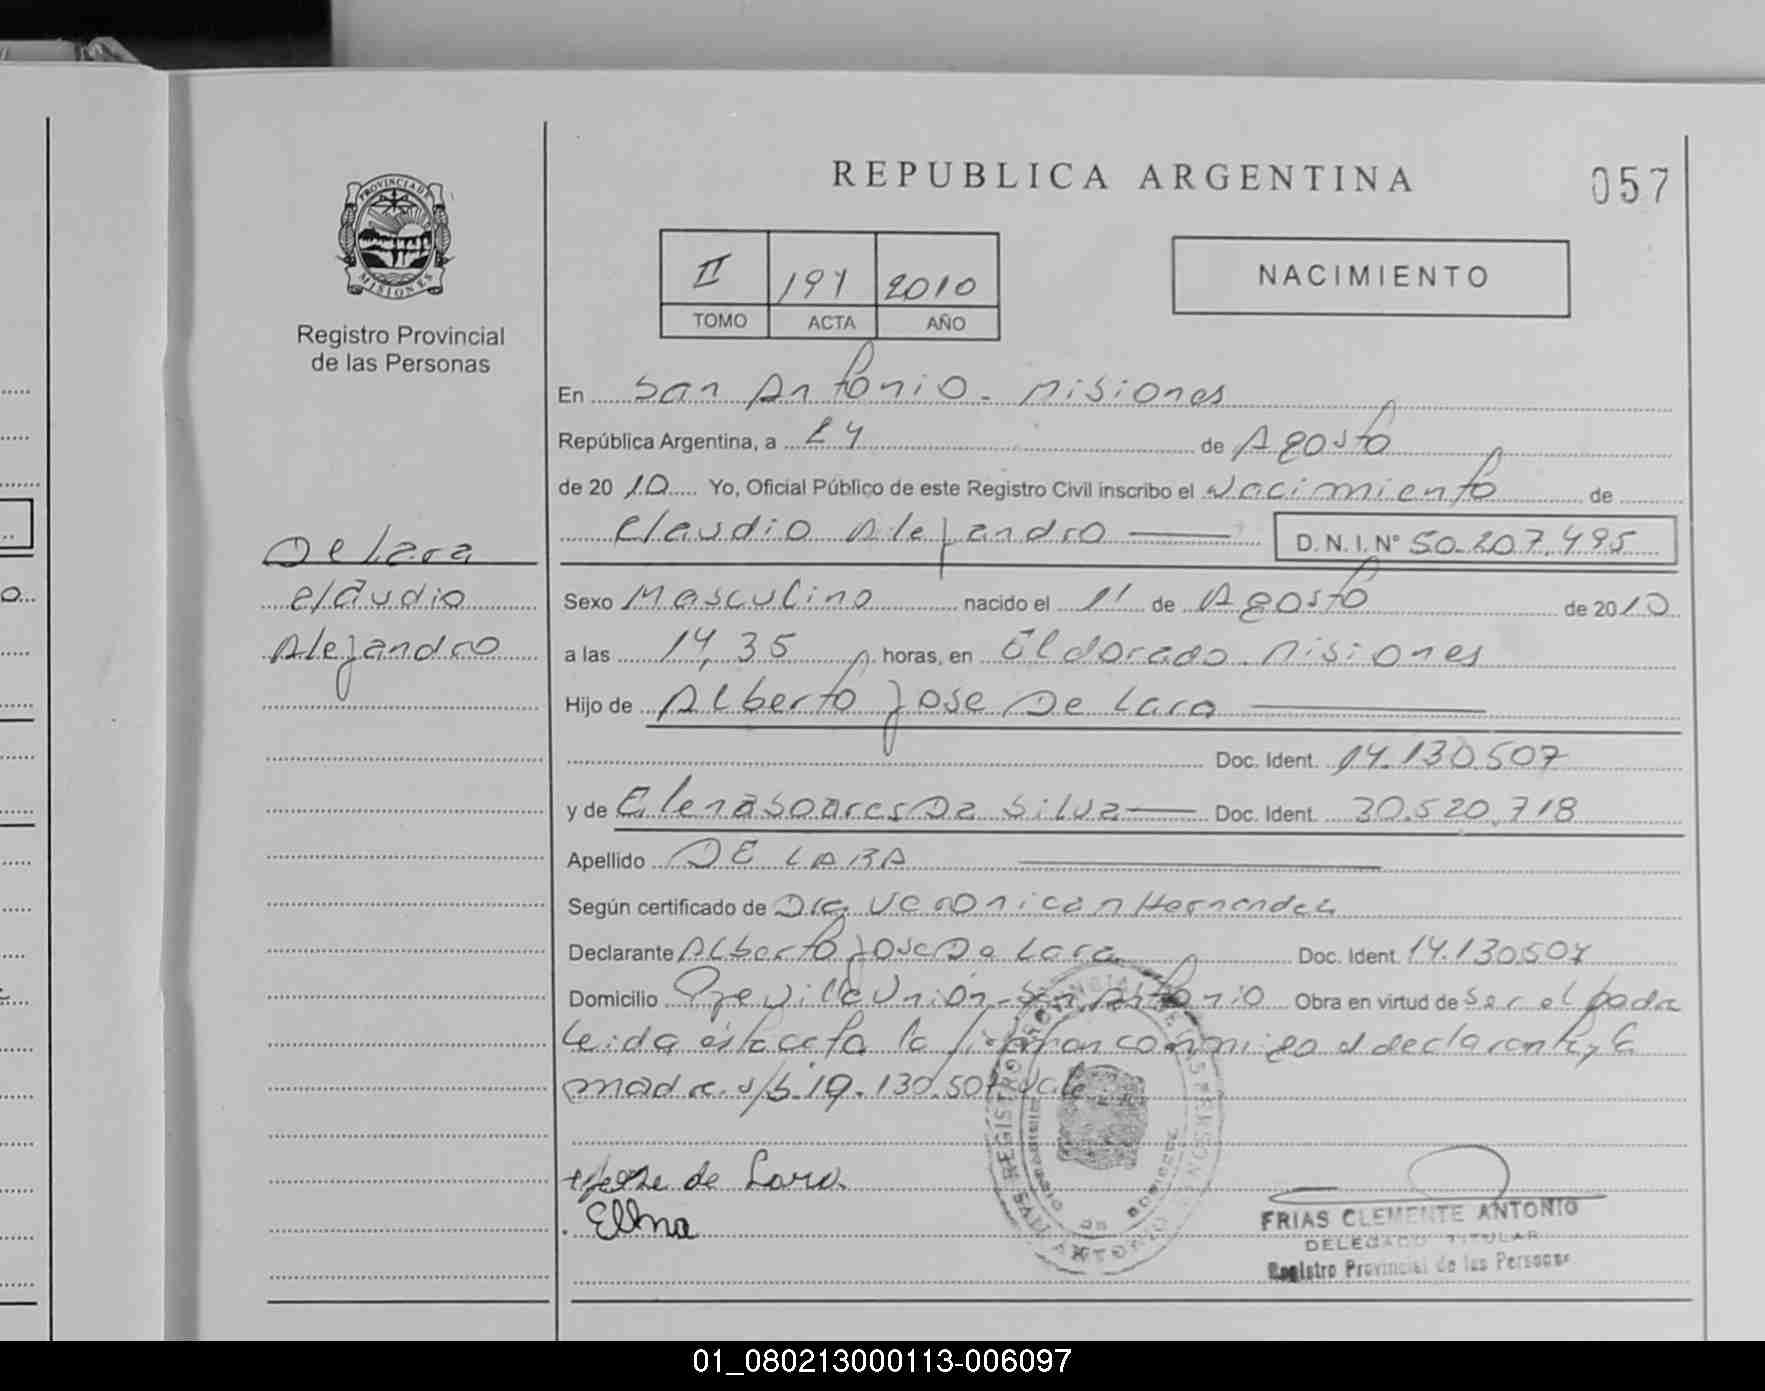 REPUBLICA ARGENTINA
057
PROVINCIA DE
MISIONES
Registro Provincial
de las Personas
II 191 2010
TOMO ACTA AÑO
NACIMIENTO
En San Antonio - Misiones
República Argentina, a 24 de Agosto
de 2010 Yo, Oficial Público de este Registro Civil inscribo el Nacimiento de
Claudio Alejandro D.N.I. Nº 50.207.495
De Lara
Claudio
Alejandro
Sexo Masculino nacido el 11 de Agosto de 2010
a las 14,35 horas, en Eldorado. Misiones
Hijo de Alberto Jose De Lara
Doc. Ident. 14.130.507
y de Elena Soares Da Silva Doc. Ident. 30.520.718
Apellido DE LARA
Según certificado de Dra. Veronica n Hernandez
Declarante Alberto Jose De Lara Doc. Ident. 14.130.507
Domicilio Villa Union - San Antonio Obra en virtud de ser el padre
Leida esta acta la firman conmigo el declarante y la
madre. s/b. 14.130.507 vale
Jose de Lara
Elena
FRIAS CLEMENTE ANTONIO
DELEGADO TITULAR
Registro Provincial de las Personas
01_080213000113-006097